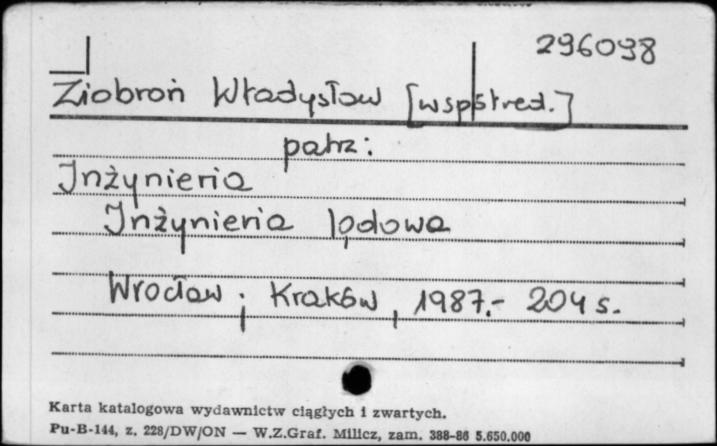 296098
Ziobroń Władysław [współred.]
patrz:
Inżynieria
Inżynieria lądowa
Wrocław ; Kraków, 1987.- 204 s.
Karta katalogowa wydawnictw ciągłych i zwartych.
Pu-B-144, z. 228/DW/ON — W.Z.Graf. Milicz, zam. 388-86 5.650.000